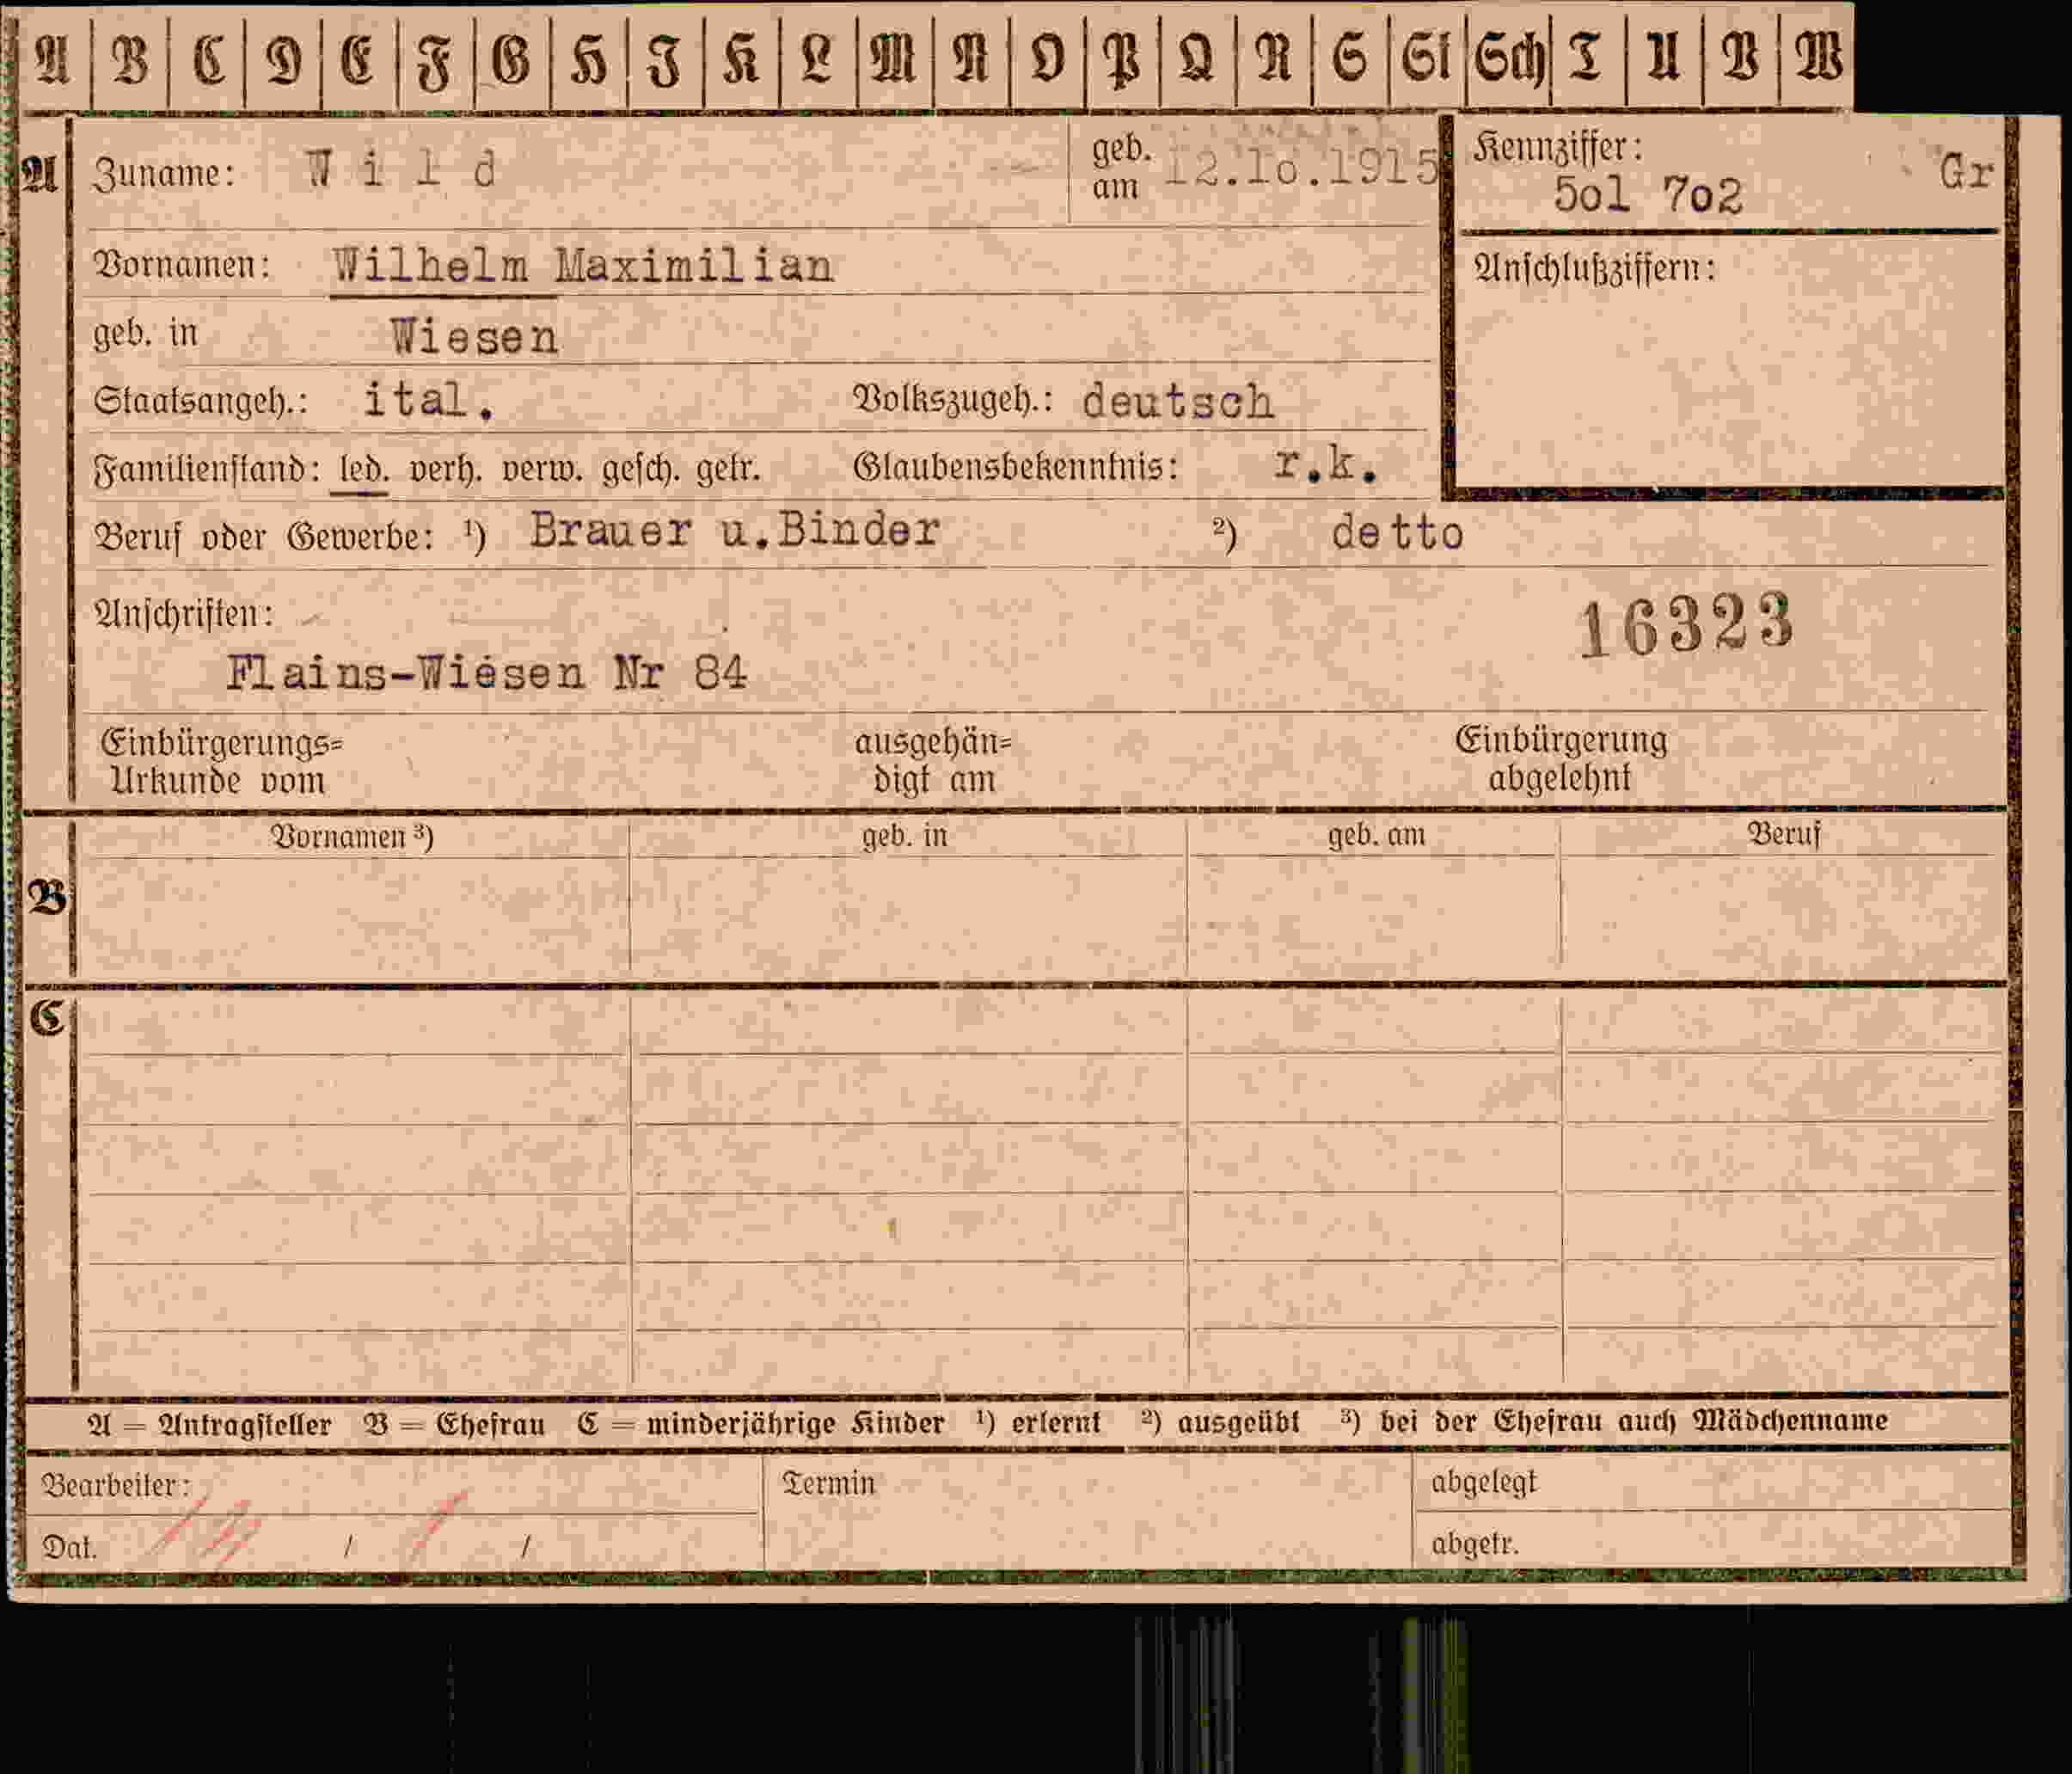 A B C D E F G H I K L M N O P Q R S St Sch T U V W
A Zuname: Wild geb. am 12.1o.1915 Kennziffer: 5o1 7o2 Gr
Vornamen: Wilhelm Maximilian Anschlußziffern:
geb. in Wiesen
Staatsangeh.: ital. Volkszugeh.: deutsch
Familienstand: led. verh. verw. gesch. getr. Glaubensbekenntnis: r.k.
Beruf oder Gewerbe: ¹) Brauer u.Binder ²) detto
Anschriften: 16323
Flains-Wiesen Nr 84
Einbürgerungs= ausgehän= Einbürgerung
Urkunde vom digt am abgelehnt
Vornamen ³) geb. in geb. am Beruf
B
C
A = Antragsteller B = Ehefrau C = minderjährige Kinder ¹) erlernt ²) ausgeübt ³) bei der Ehefrau auch Mädchenname
Bearbeiter: Termin abgelegt
Dat. / / abgetr.